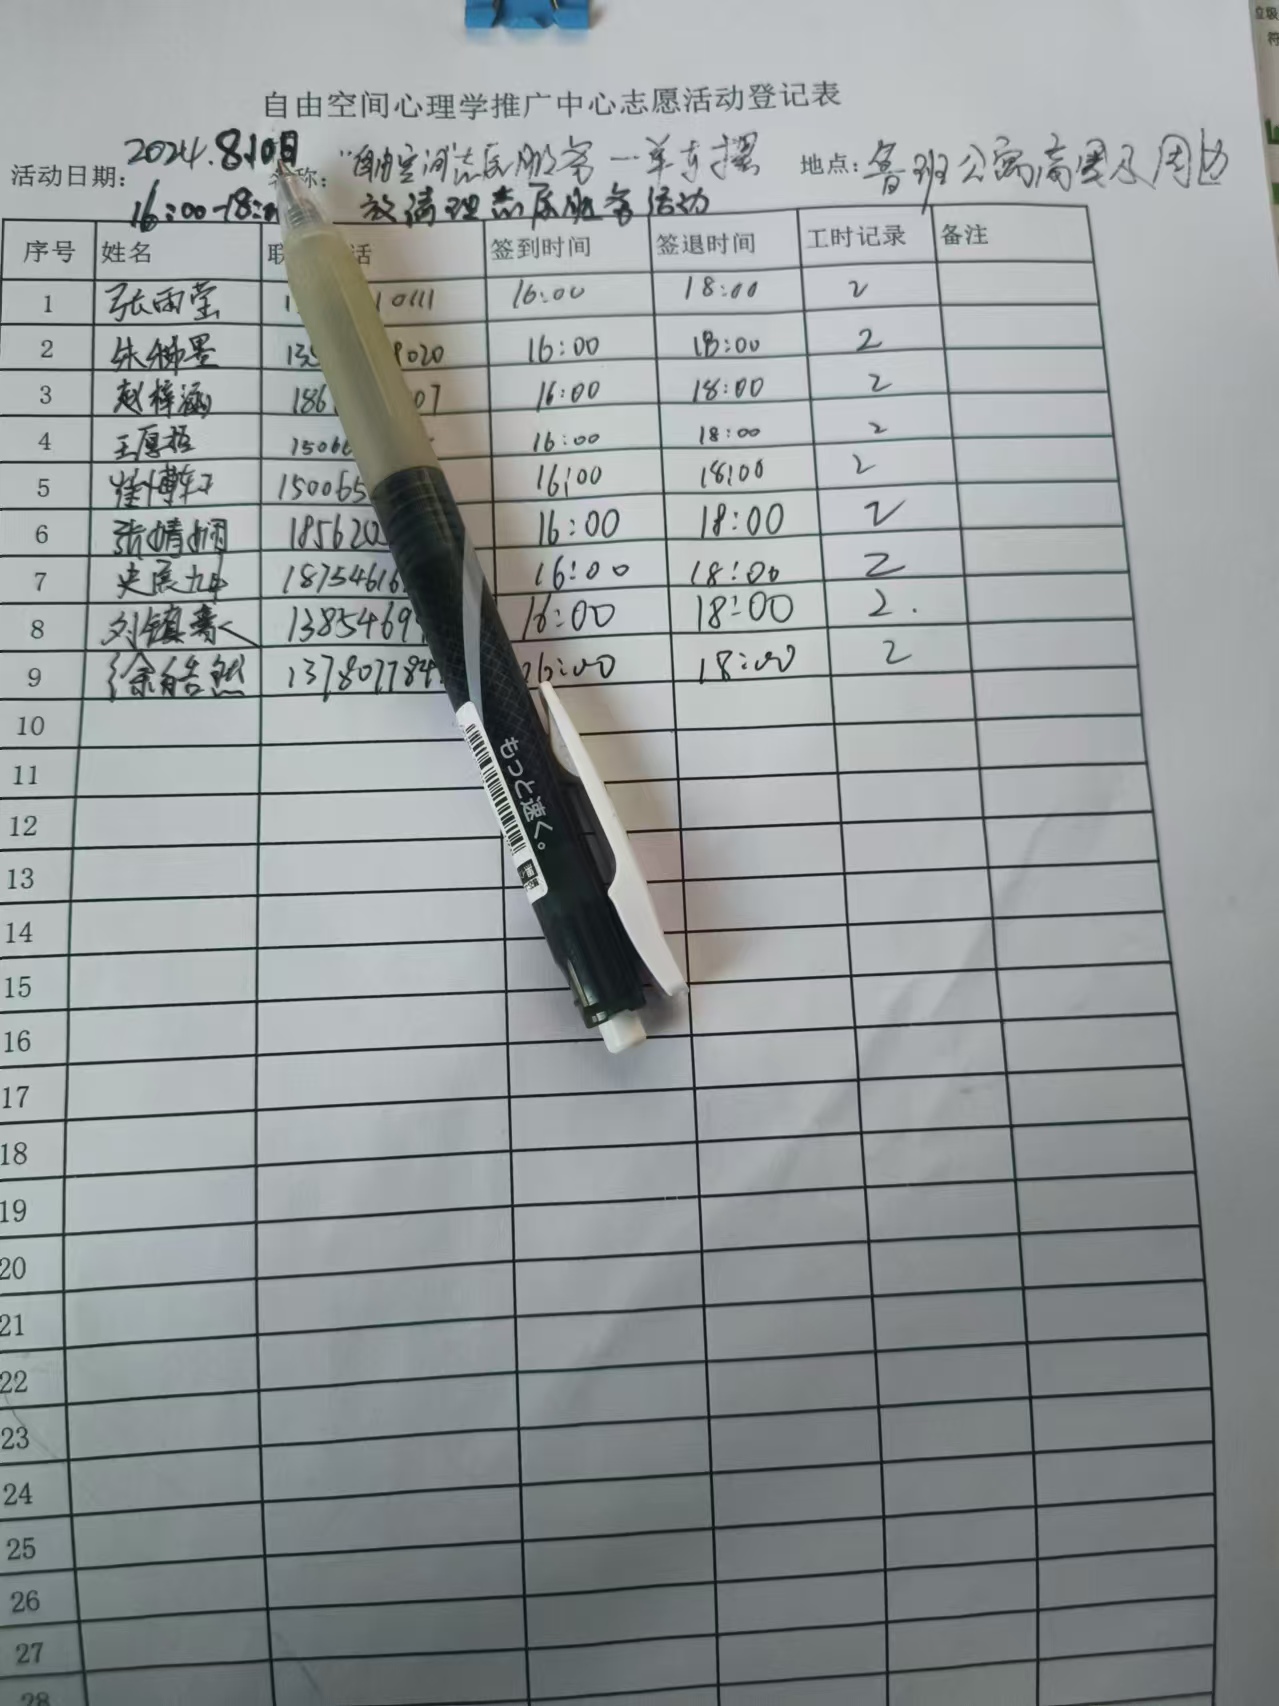 自由空间心理学推广中心志愿活动登记表
活动日期: 2024.8.10日 称: "自由空间"志愿服务一单车摆 地点: 鲁班公寓商圈及周边
16:00-18: 放清理志愿服务活动
序号 姓名 联 话 签到时间 签退时间 工时记录 备注
1 张雨莹 1 10111 16:00 18:00 2
2 朱 墨 13 9020 16:00 18:00 2
3 赵梓涵 186 07 16:00 18:00 2
4 王厚程 15066 16:00 18:00 2
5 崔博轩 150065 16:00 18:00 2
6 张婧娴 185620 16:00 18:00 2
7 史展 1875461 16:00 18:00 2
8 刘镇 1385469 16:00 18:00 2.
9 徐皓然 137807784 16:00 18:00 2
10
11
12
13
14
15
16
17
18
19
20
21
22
23
24
25
26
27
28
もっと速く。